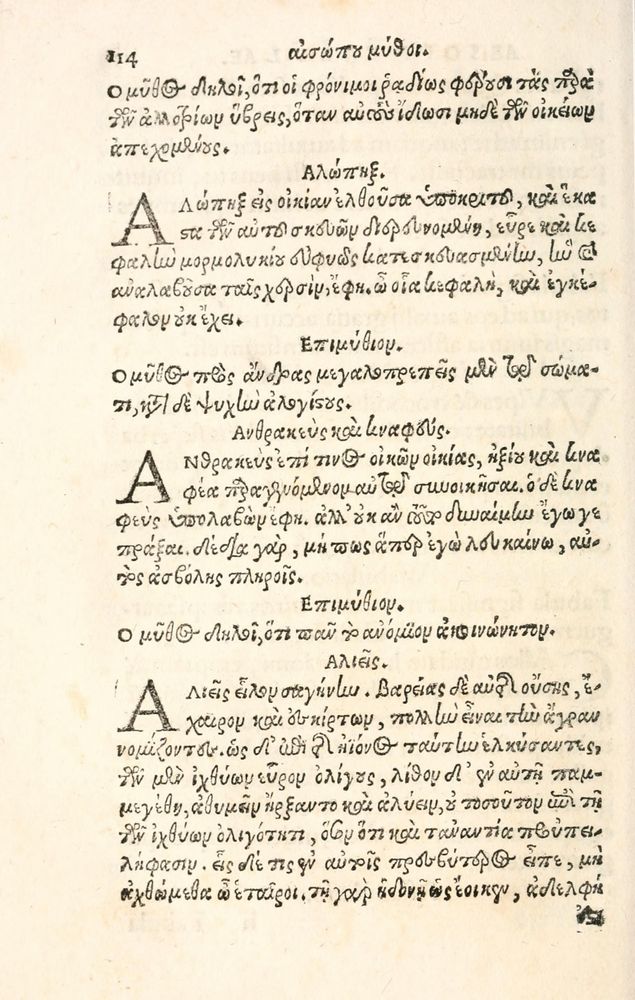 114 αἰσώπου μῦθοι.
Ὁ μῦθος δηλοῖ, ὅτι οἱ φρόνιμοι ῥαδίως φεύγουσι τὰς παρὰ
τῶν ἀλλοτρίων ὕβρεις, ὅταν αὐτοὺς ἴδωσι μηδὲ τῶν οἰκείων
ἀπεχομένους.
Αλώπηξ.
Αλώπηξ εἰς οἰκίαν ἐλθοῦσα ὑποκριτοῦ, καὶ ἕκα
στα τῶν αὐτοῦ σκευῶν διερευνομένη, εὗρε καὶ κε
φαλὴν μορμολυκίου εὐφυῶς κατεσκευασμένην, ἣν καὶ
ἀναλαβοῦσα ταῖς χερσὶν, ἔφη. ὢ οἵα κεφαλὴ, καὶ ἐγκέ-
φαλον οὐκ ἔχει.
Επιμύθιον.
Ὁ μῦθος πρὸς ἄνδρας μεγαλοπρεπεῖς μὲν τῷ σώμα-
τι, κατὰ δὲ ψυχὴν ἀλογίστους.
Ανθρακεὺς καὶ κναφεύς.
Ανθρακεὺς ἐπί τινος οἰκῶν οἰκίας, ἠξίου καὶ κνα
φέα παραγενόμενον αὐτῷ συνοικῆσαι. ὁ δὲ κνα
φεὺς ὑπολαβὼν ἔφη. ἀλλ' οὐκ ἂν τοῦτο δυναίμην ἔγωγε
πρᾶξαι. δέδια γὰρ, μήπως ἅπερ ἐγὼ λευκαίνω, αὐ-
τὸς ἀσβόλης πληροῖς.
Επιμύθιον.
Ὁ μῦθος δηλοῖ, ὅτι πᾶν τὸ ἀνόμοιον ἀκοινώνητον.
Αλιεῖς.
Αλιεῖς εἷλκον σαγήνην. Βαρείας δὲ αὐτῆς οὔσης, ἔ-
χαιρον καὶ ἐσκίρτων, πολλὴν εἶναι τὴν ἄγραν
νομίζοντες. ὡς δ' ἐπὶ τῆς ἠϊόνος ταύτην ἑλκύσαντες,
τῶν μὲν ἰχθύων εὗρον ὀλίγους, λίθον δ' ἐν αὐτῇ παμ-
μεγέθη, ἀθυμεῖν ἤρξαντο καὶ ἀλύειν, οὐ τοσοῦτον ἐπὶ τῇ
τῶν ἰχθύων ὀλιγότητι, ὅσον ὅτι καὶ τἀναντία προϋπει-
λήφασιν. εἷς δέ τις ἐν αὐτοῖς πρεσβύτερος εἶπε, μὴ
ἀχθώμεθα ὦ ἑταῖροι. τῇ γὰρ ἡδονῇ ὡς ἔοικεν, ἀδελφή